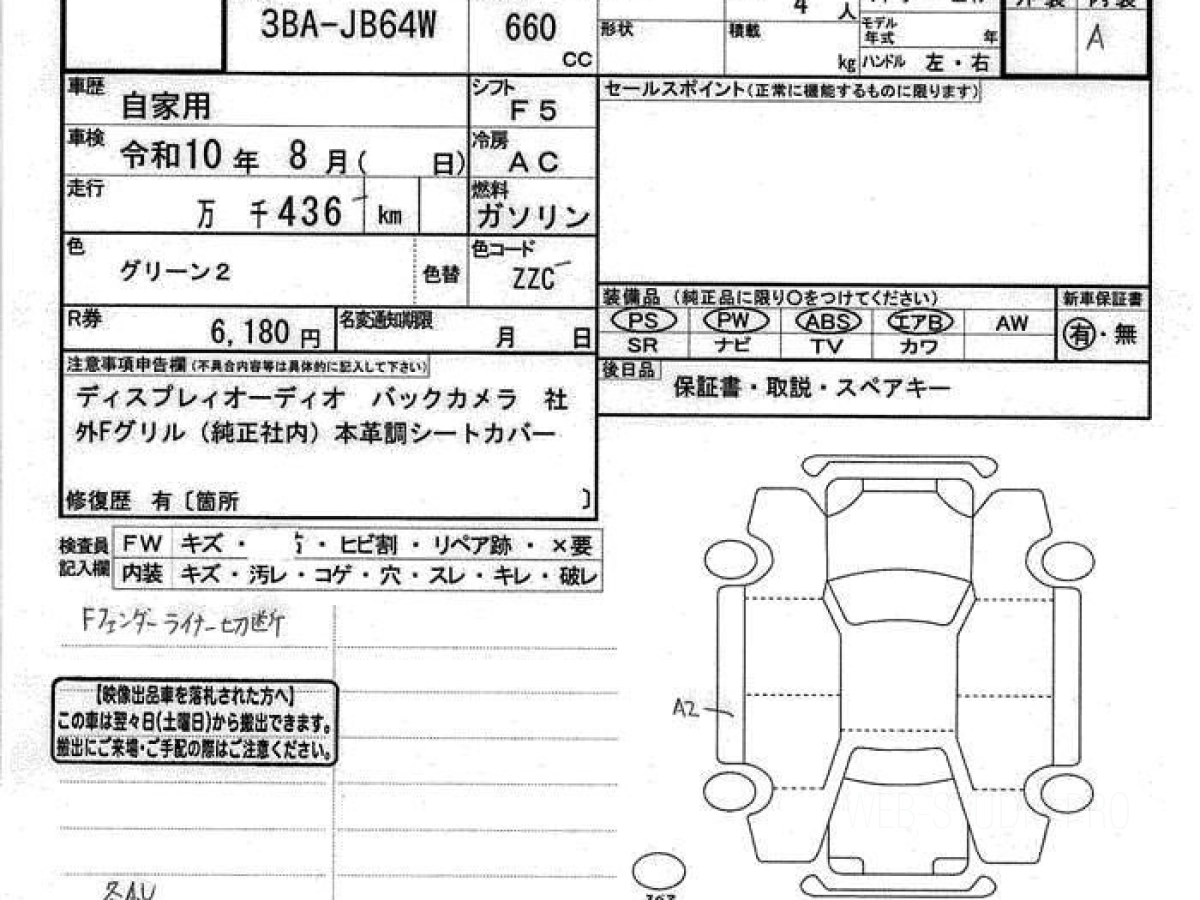 3BA-JB64W
660
CC
4
人
形状
積載
kg
モデル
年式
年
ハンドル 左・右
外装 内装
A
車歴
自家用
シフト
F5
セールスポイント(正常に機能するものに限ります)
車検
令和10年 8月( 日)
冷房
AC
走行
万 千436 km
燃料
ガソリン
色
グリーン2
色替
色コード
ZZC
装備品 (純正品に限り〇をつけてください)
新車保証書
PS PW ABS エアB AW
有・無
SR ナビ TV カワ
R券
6,180円
名変通知期限
月 日
後日品
保証書・取説・スペアキー
注意事項申告欄(不具合内容等は具体的に記入して下さい)
ディスプレィオーディオ バックカメラ 社
外Fグリル(純正社内)本革調シートカバー
修復歴 有〔箇所 〕
検査員
記入欄
FW キズ・ ・ヒビ割・リペア跡・×要
内装 キズ・汚レ・コゲ・穴・スレ・キレ・破レ
Fフェンダーライナー切断
【映像出品車を落札された方へ】
この車は翌々日(土曜日)から搬出できます。
搬出にご来場・ご手配の際はご注意ください。
A2
WEB-STUDIO.PRO